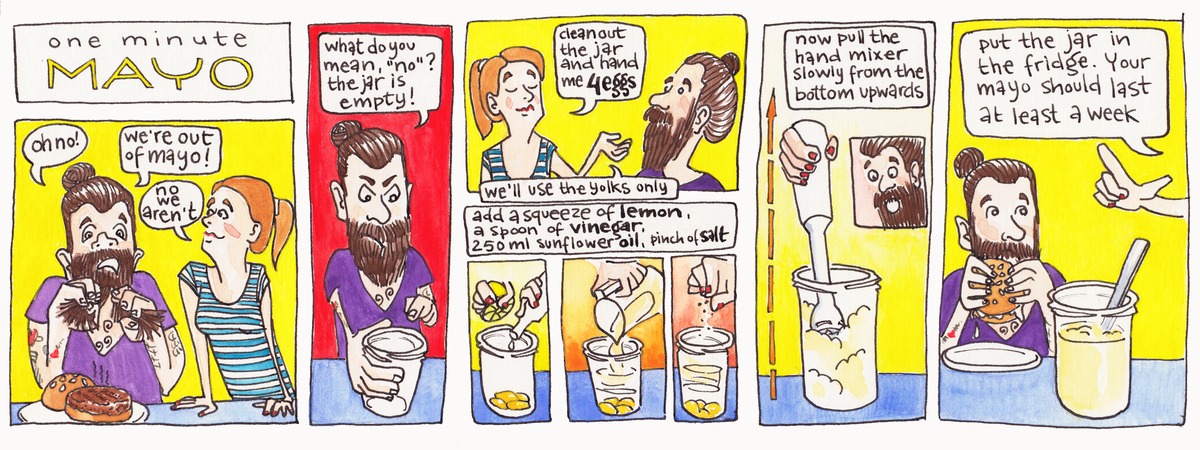 one minute
MAYO
oh no!
we're out
of mayo!
no
we
aren't
what do you
mean, "no"?
the jar is
empty!
clean out
the jar
and hand
me 4 eggs
we'll use the yolks only
add a squeeze of lemon,
a spoon of vinegar,
250 ml sunflower oil, pinch of salt
now pull the
hand mixer
slowly from the
bottom upwards
put the jar in
the fridge. Your
mayo should last
at least a week